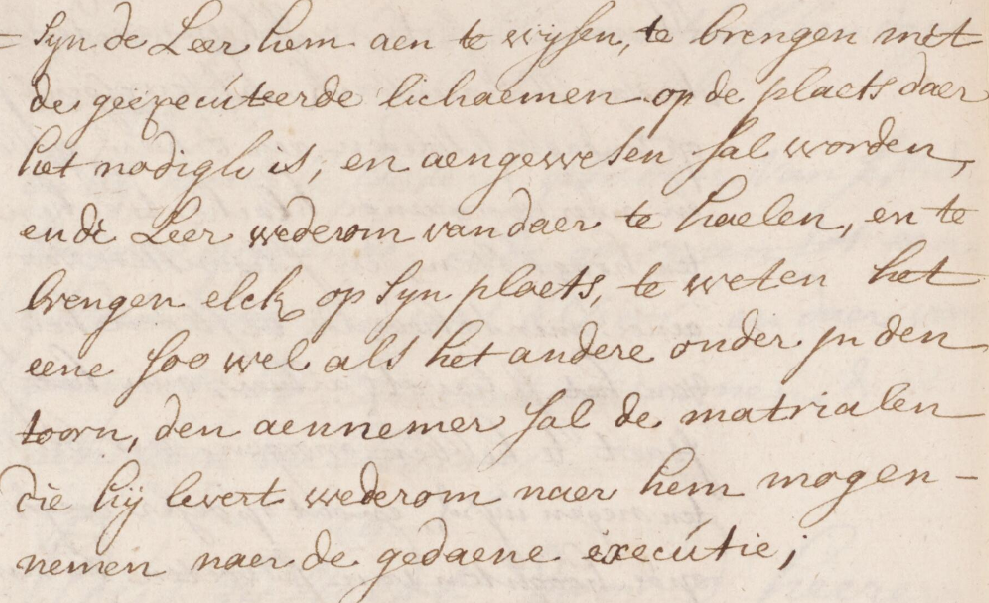 = syn de Leer hem aen te wysen, te brengen mit
de geëxecúteerde lichaemen op de plaets daer
het nodigh is, en aengewesen sal worden,
en de Leer wederom van daer te haelen, en te
brengen elck op syn plaets, te weten het
eene soo wel als het andere onder jn den
toorn, den aennemer sal de matrialen
die hij levert wederom naer hem mogen -
nemen naer de gedaene execútie;